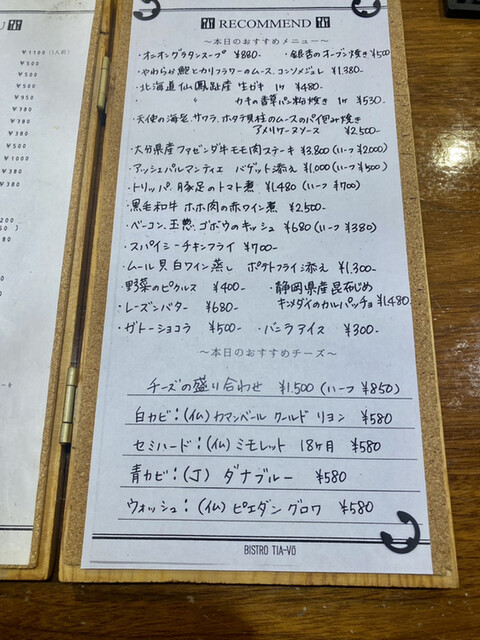 U
¥1100 (1人前)
¥500
¥500
¥950
¥780
¥380
¥380
¥500
¥1000
¥380
¥380
RECOMMEND
〜本日のおすすめメニュー〜
・オニオングラタンスープ ¥880- ・銀杏のオーブン焼き ¥500
・やわらか鮑とカリフラワーのムース、コンソメジュレ ¥1,380-
・北海道仙鳳趾産 生ガキ 1ヶ ¥480-
・ カキの香草パン粉焼き 1ヶ ¥530-
・天使の海老、サワラ、ホタテ貝柱のムースのパイ包み焼き
アメリケーヌソース ¥2,500-
・大分県産ファゼンダ牛モモ肉ステーキ ¥3,800 (ハーフ ¥2,000)
・アッシェパルマンティエ バゲット添え ¥1,000 (ハーフ ¥500)
・トリッパ、豚足のトマト煮 ¥1,480 (ハーフ ¥700)
・黒毛和牛 ホホ肉の赤ワイン煮 ¥2,500-
・ベーコン、玉葱、ゴボウのキッシュ ¥680 (ハーフ ¥380)
・スパイシーチキンフライ ¥700-
・ムール貝 白ワイン蒸し ポテトフライ添え ¥1,300-
・野菜のピクルス ¥400- ・静岡県産昆布じめ
・レーズンバター ¥680- キンメダイのカルパッチョ ¥1,480-
・ガトーショコラ ¥500- ・バニラアイス ¥300-
〜本日のおすすめチーズ〜
チーズの盛り合わせ ¥1,500 (ハーフ ¥850)
白カビ：(仏) カマンベール クールド リヨン ¥580
セミハード：(仏) ミモレット 18ヶ月 ¥580
青カビ：(J) ダナブルー ¥580
ウォッシュ：(仏) ピエダングロワ ¥580
BISTRO TIA-VŌ